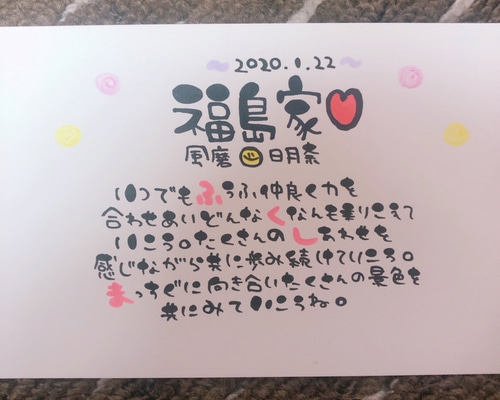 2020.1.22
福島家
風磨 日月奈
いつでもふうふ仲良く力を
合わせあいどんなくなんも乗りこえて
いこう。たくさんのしあわせを
感じながら共に歩み続けていこう。
まっすぐに向き合いたくさんの景色を
共にみていこうね。